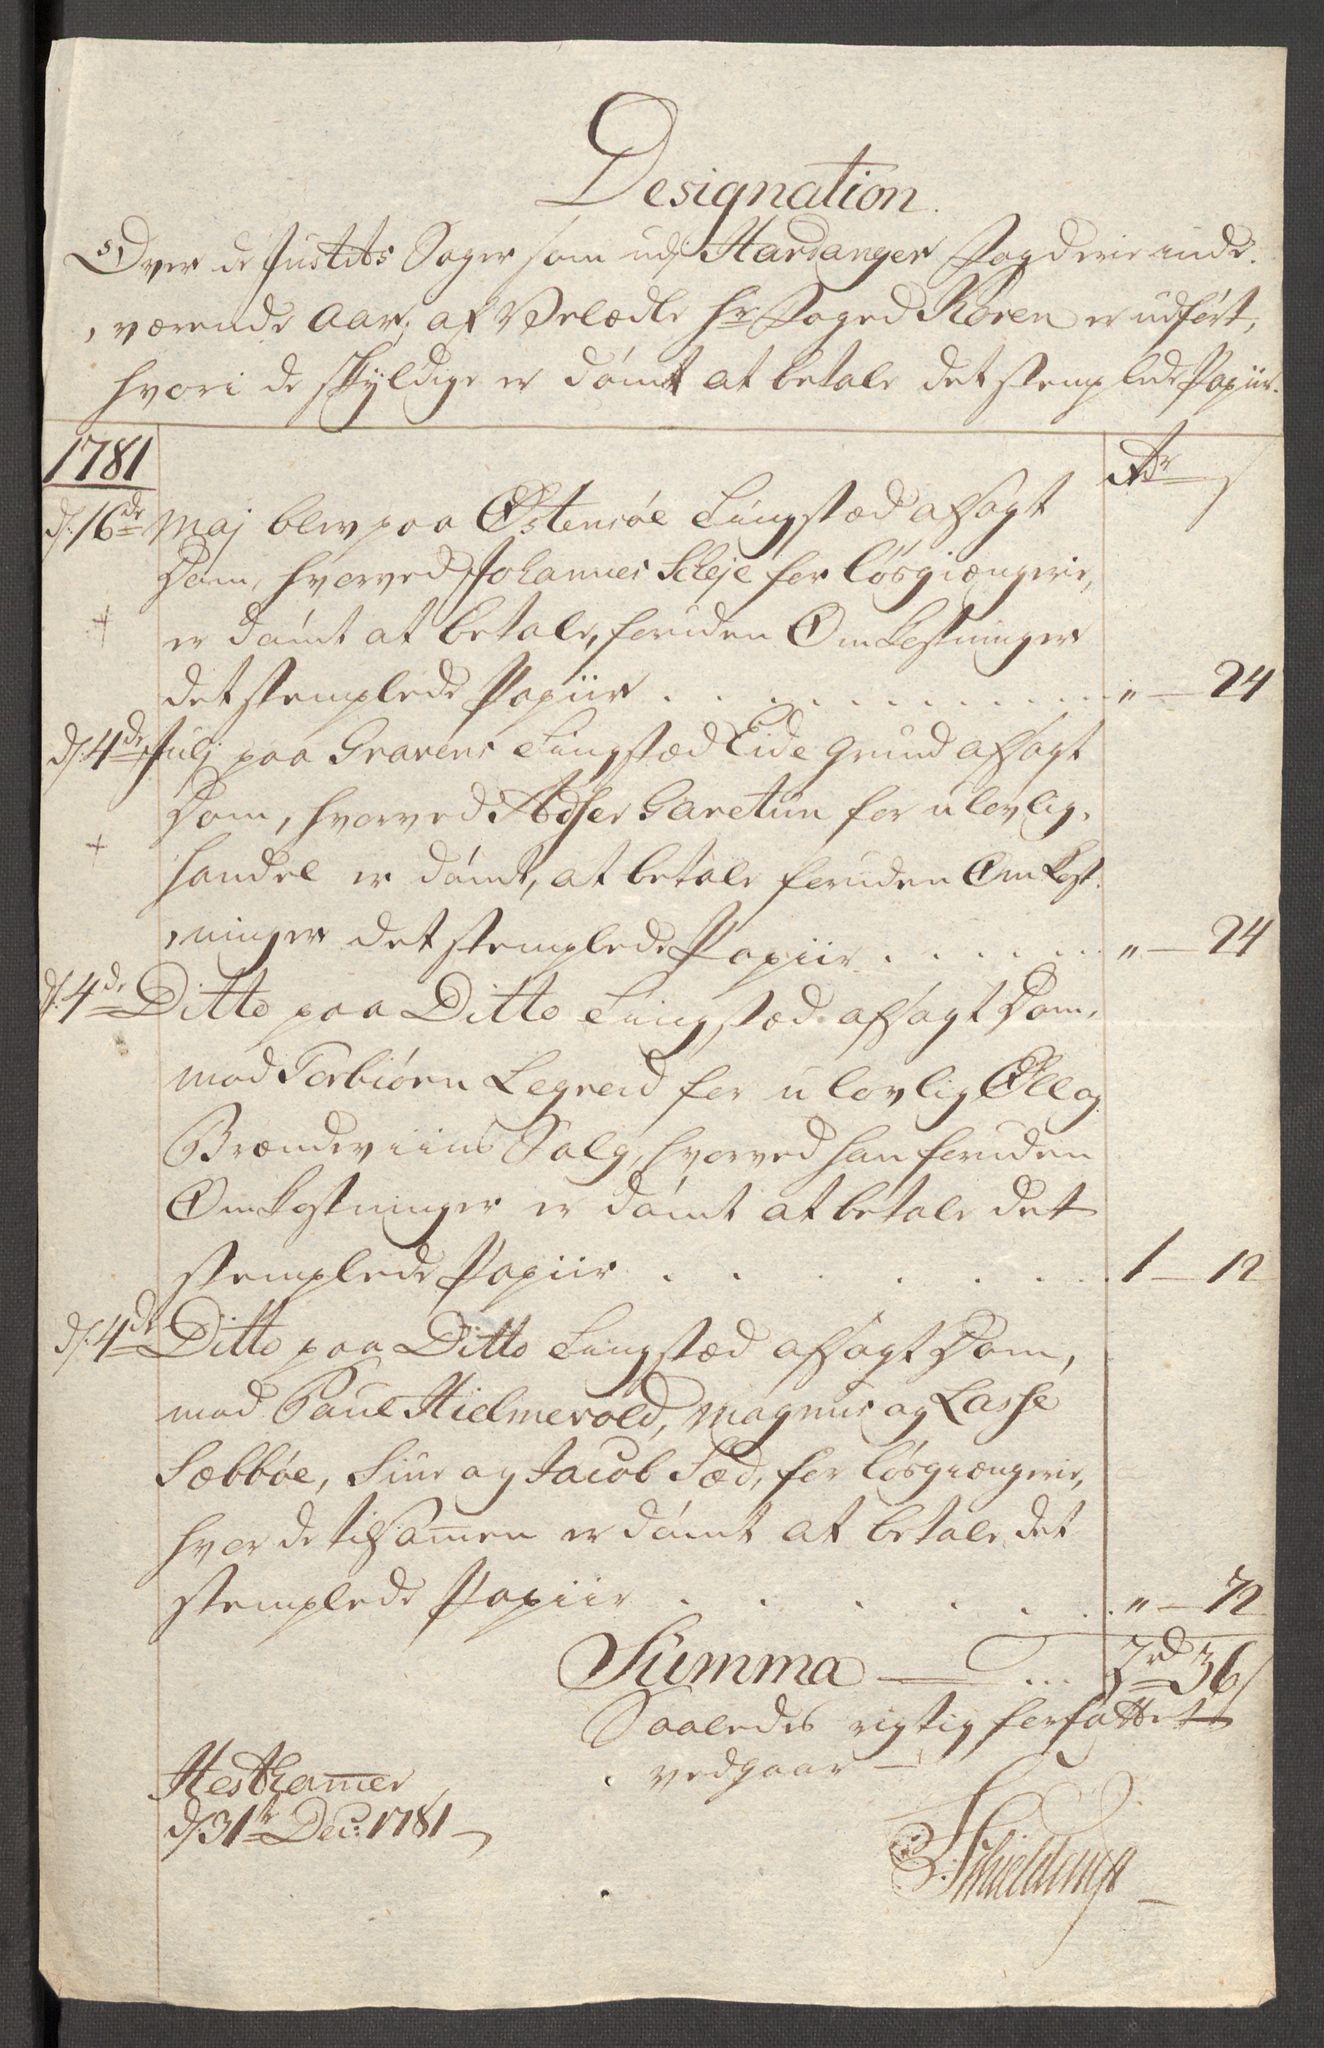 Designation
Over de Justits Sager som udj Hardanger Fogderie inde-
værende Aar, af Velædle Hr: Foged Koren er udført,
hvori de skyldige er dömt at betale det stemplede Papiir.
1781 Rdr s
d. 16de Maj blev paa Østensöe Tingstæd afsagt
Dom, hvorved Johannes Scheje for løsgiængerie,
er dömt at betale, foruden Omkostninger
det stemplede Papiir . . . . . . „ — 24
d. 4de Julj paa Gravens Tingstæd Eide grund afsagt
Dom, hvorved Adser Garetun for ulovlig
handel er dömt, at betale foruden Omkost-
ninger det stemplede Papiir . . . . . . „ — 24
d. 4de Ditto paa Ditto Tingstæd afsagt Dom,
mod Torbiörn Legreid for ulovlig Øll og
Brændeviins Salg, hvorved han foruden
Omkostninger er dömt at betale det
stemplede Papiir . . . . . . 1 — 12
d. 4de Ditto paa Ditto Tingstæd afsagt Dom,
mod Paul Hielmevold, Magnus og Lasse
Sæbböe, Siur og Jacob Sæd, for løsgiængerie,
hvor de tilsamen er dömt at betale det
stemplede Papiir . . . . . . „ — 72
Summa — ... 2rd 36 s
Saaledes rigtig forfattet
vedgaar —
Hesthamer
d. 31te Dec: 1781